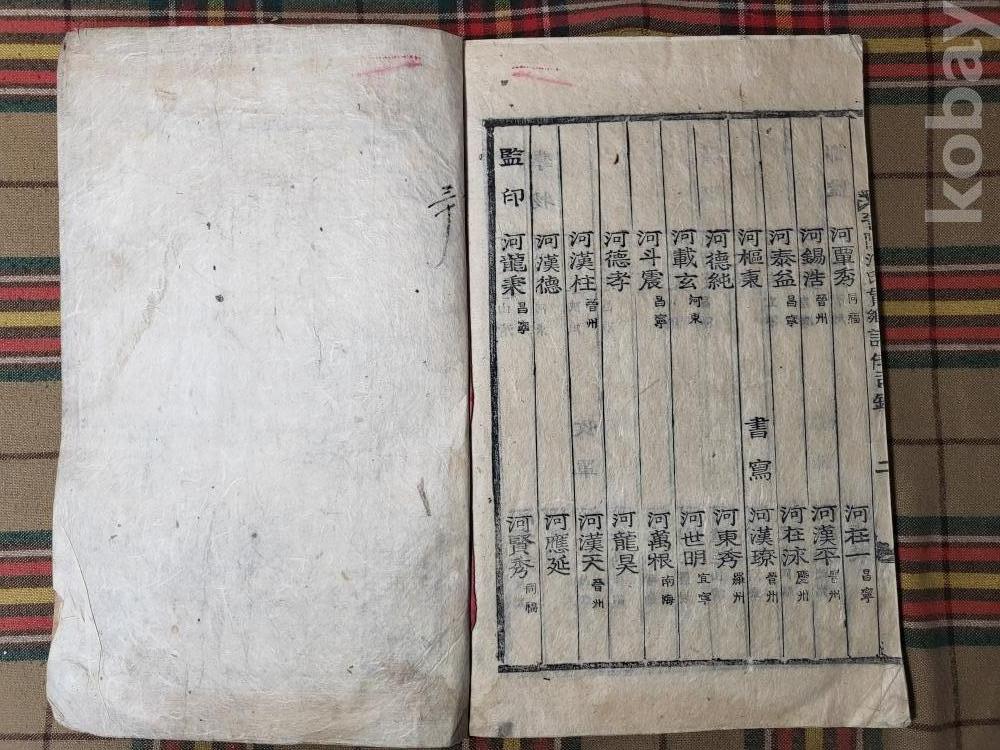 河氏貫鄕譜 二
河覃秀 同福 河在一 昌寧
河錫浩 晉州 河漢平 晉州
河泰益 昌寧 河在泳 慶州
河樞東 書寫 河漢璙 晉州
河德純 河東秀 羅州
河載玄 河東 河世明 宜寧
河斗震 昌寧 河萬根 南海
河德孝 河龍昊
河漢柱 晉州 河漢天 晉州
河漢德 河應延
監印 河龍秉 昌寧 河賢秀 同福
kobay